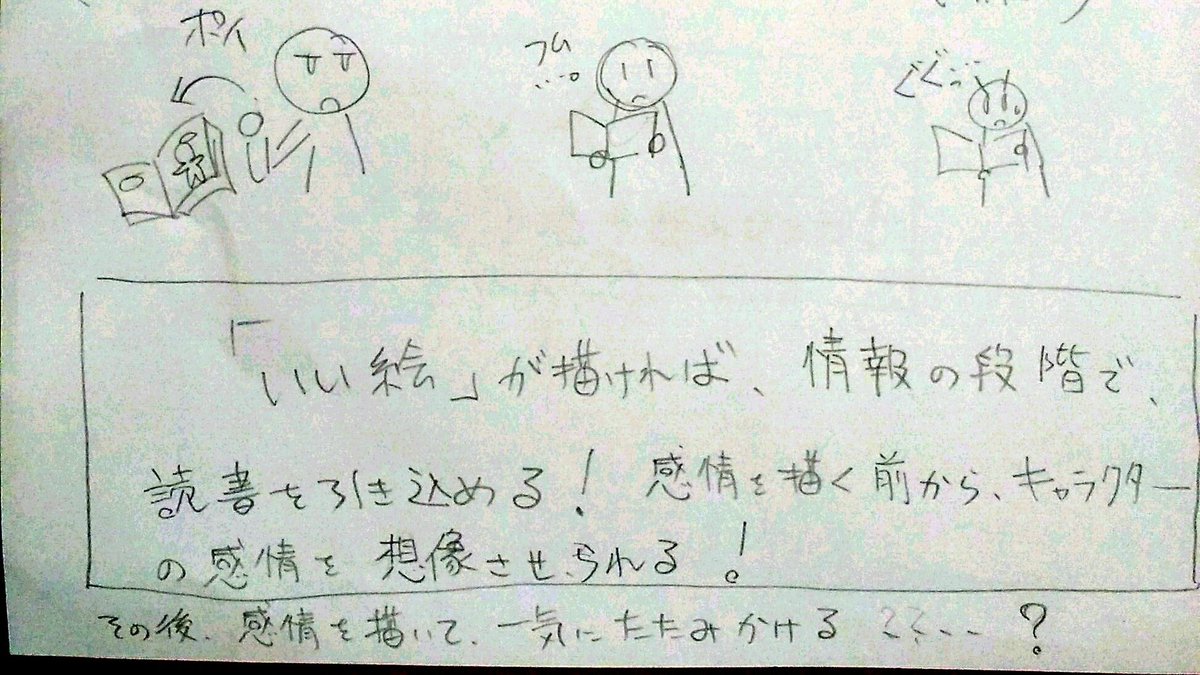 ポイ
フム
ぐぐっ…
「いい絵」が描ければ、情報の段階で、
読書を引き込める! 感情を描く前から、キャラクター
の感情を想像させられる!
その後、感情を描いて、一気にたたみかける ?